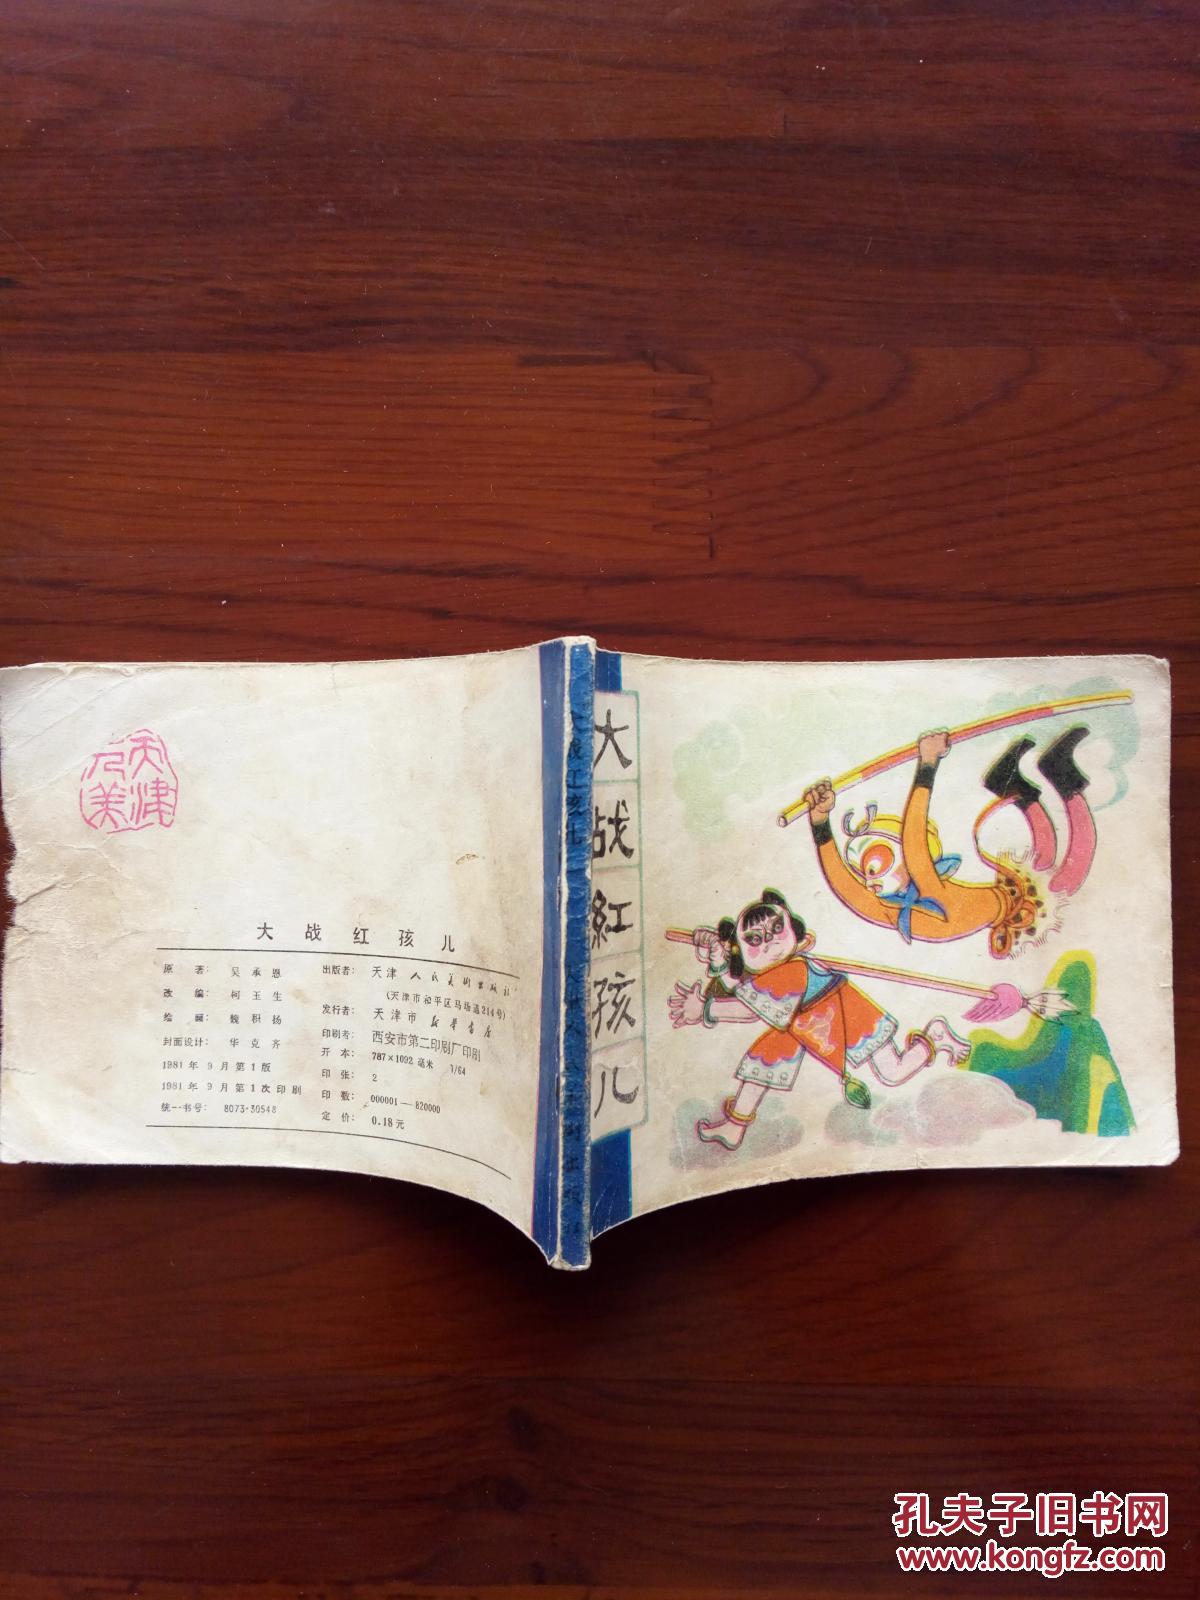 天津
人美
大战红孩儿
原著：吴承恩
改编：柯玉生
绘画：魏积扬
封面设计：华克齐
1981年9月第1版
1981年9月第1次印刷
统一书号：8073·30548
出版者：天津人民美术出版社
（天津市和平区马场道214号）
发行者：天津市新华书店
印刷者：西安市第二印刷厂印刷
开本：787×1092毫米 1/64
印张：2
印数：000001—820000
定价：0.18元
大战紅孩儿
孔夫子旧书网
www.kongfz.com